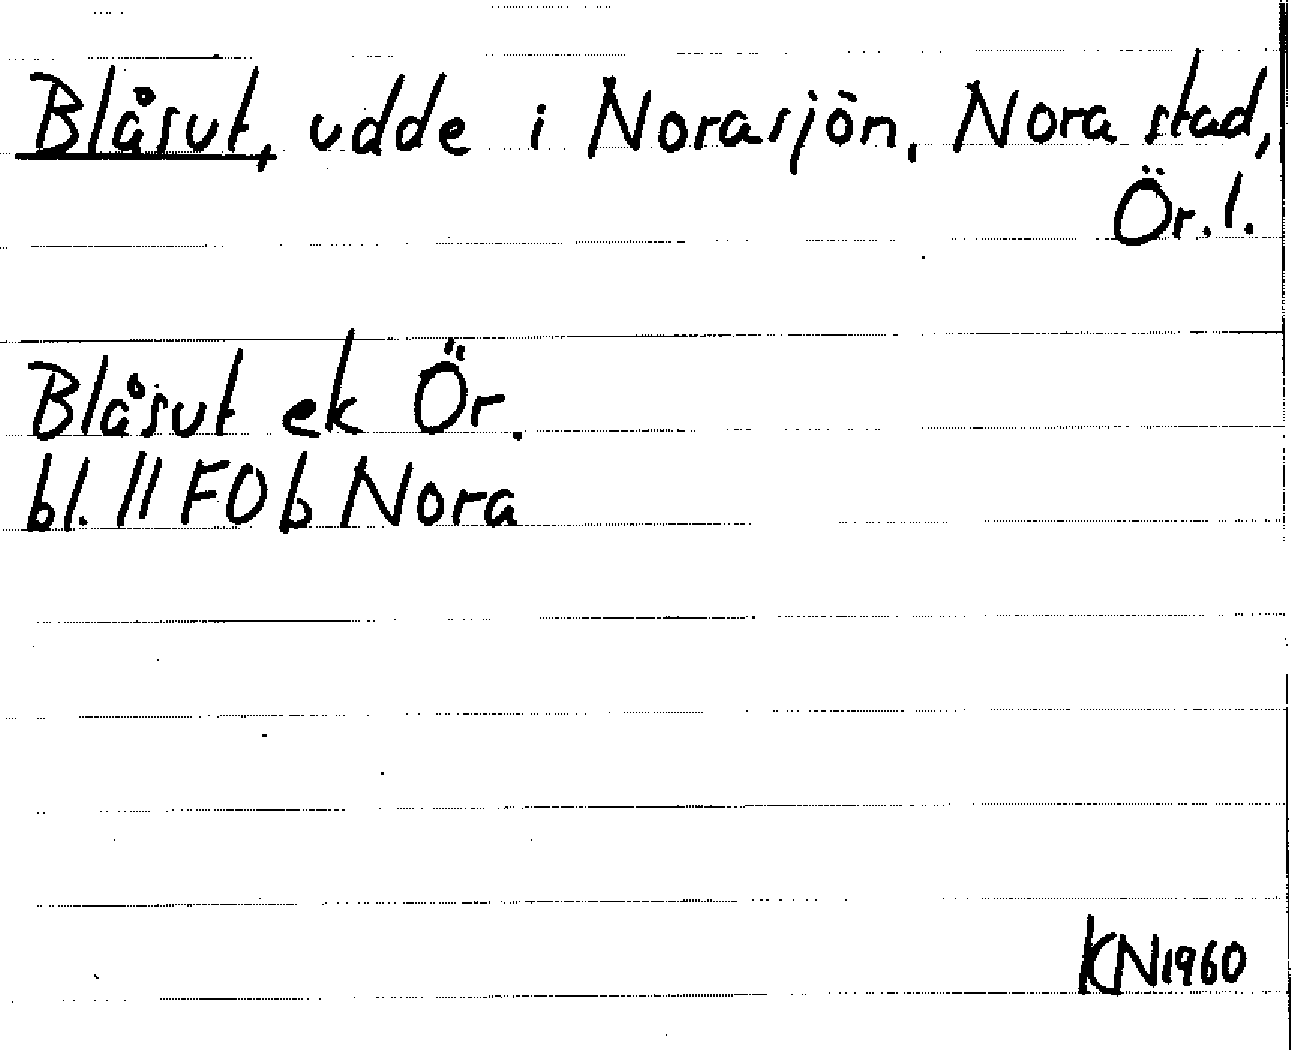 Blåsut, udde i Norasjön, Nora stad,
Ör. l.
Blåsut ek Ör.
bl. 11 F0b Nora
KN1960